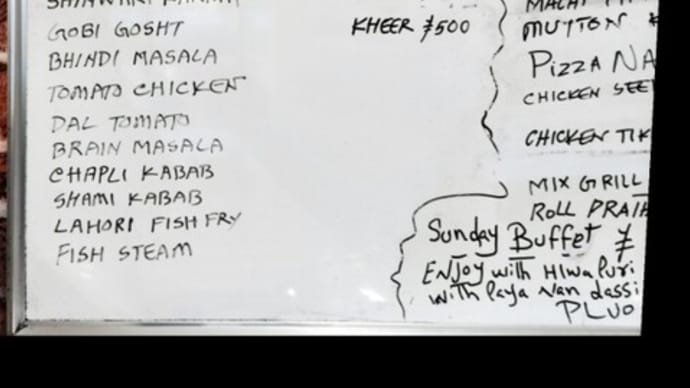 GOBI GOSHT
BHINDI MASALA
TOMATO CHICKEN
DAL TOMATO
BRAIN MASALA
CHAPLI KABAB
SHAMI KABAB
LAHORI FISH FRY
FISH STEAM
KHEER ¥500
MUTTON
PIZZA NA
CHICKEN SEE
CHICKEN TIK
MIX GRILL
ROLL PRAIH
Sunday Buffet ¥
ENJOY with Hlwa Puri
with Paya Nan dassi
PLUO